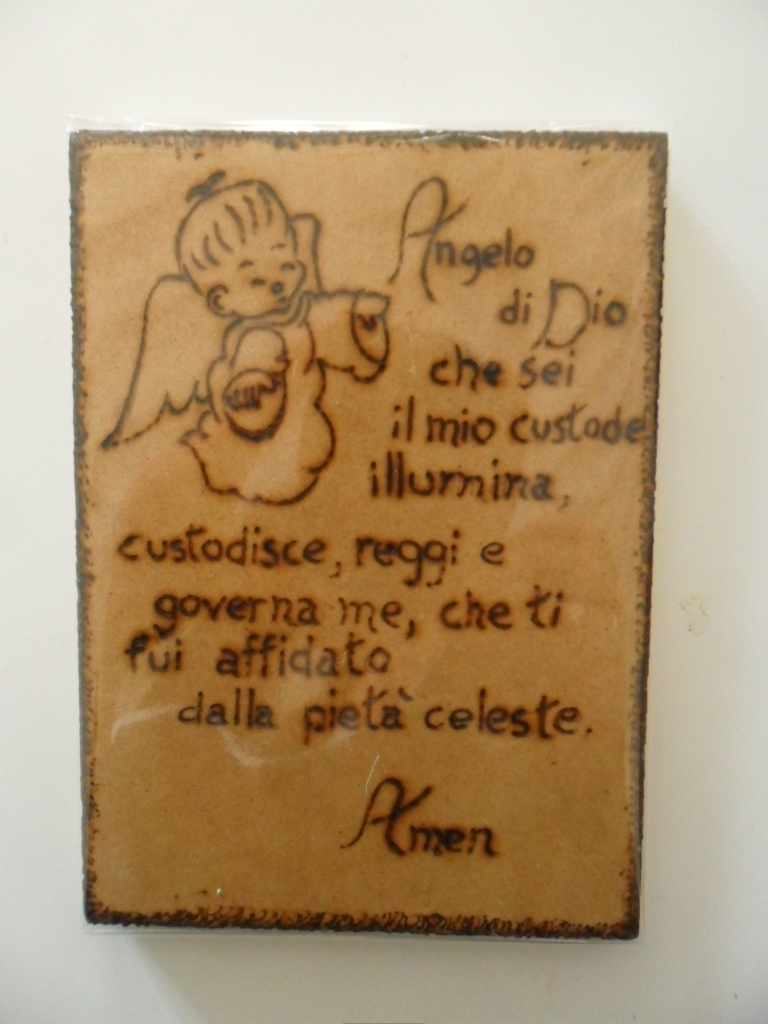 Angelo
di Dio
che sei
il mio custode
illumina,
custodisce, reggi e
governa me, che ti
fui affidato
dalla pietà celeste.
Amen